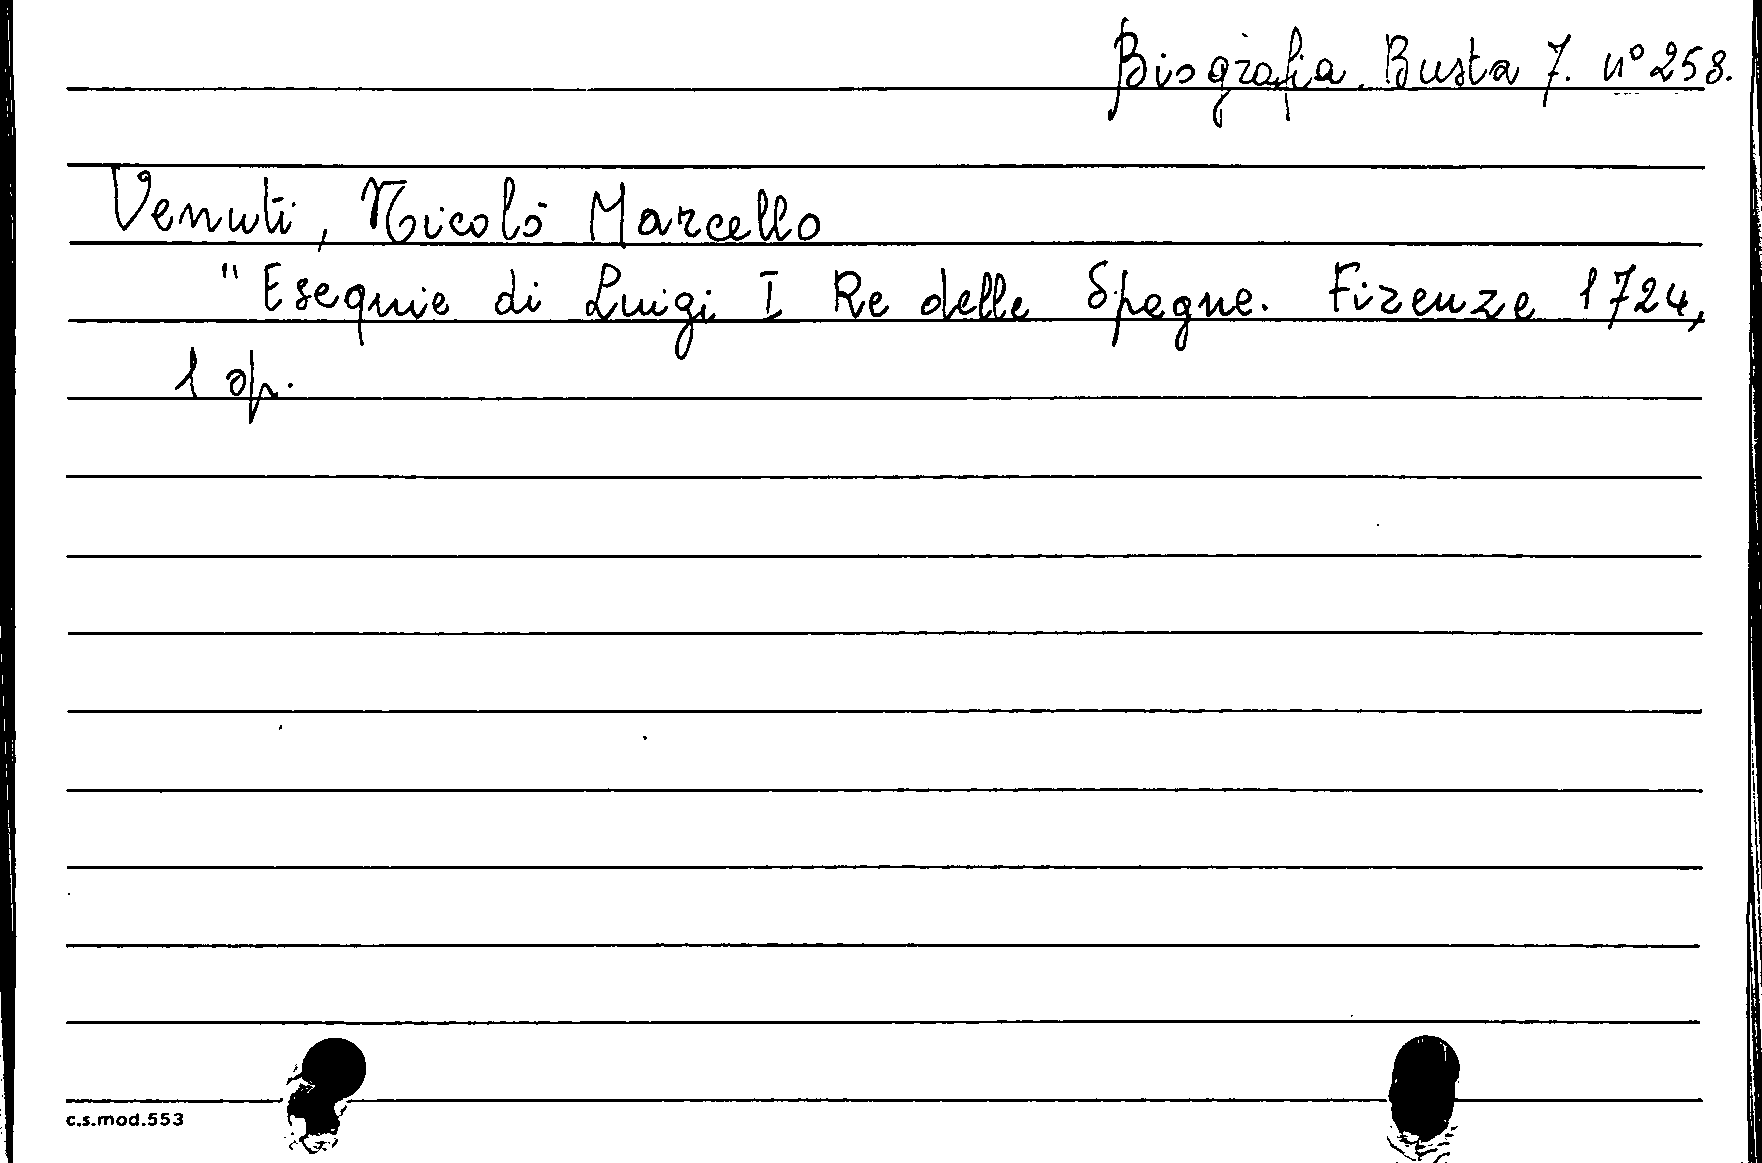 Biografia. Busta 7. n° 258.
Venuti, Nicolò Marcello
"Esequie di Luigi I Re delle Spagne. Firenze 1724,
1 op.
c.s.mod.553